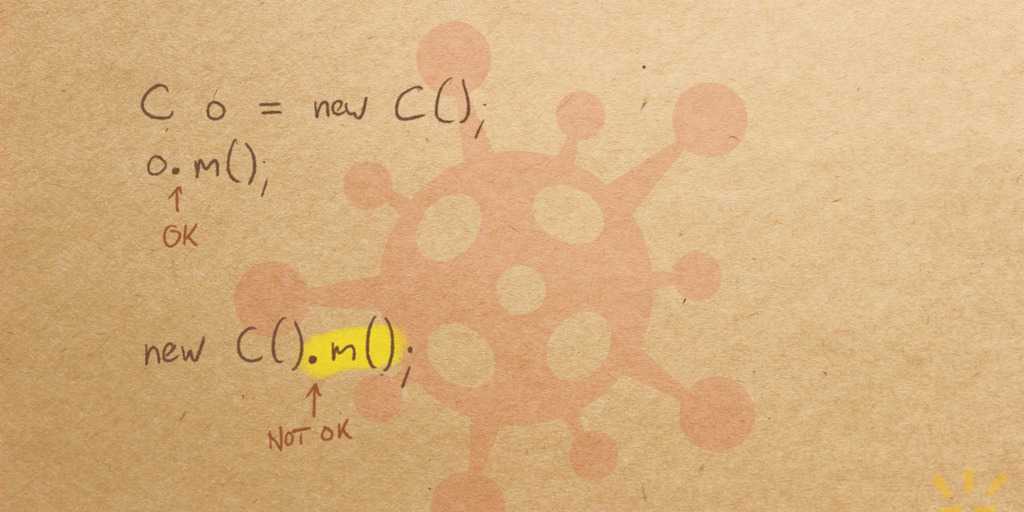 C o = new C();
o.m();
↑
OK
new C().m();
↑
NOT OK